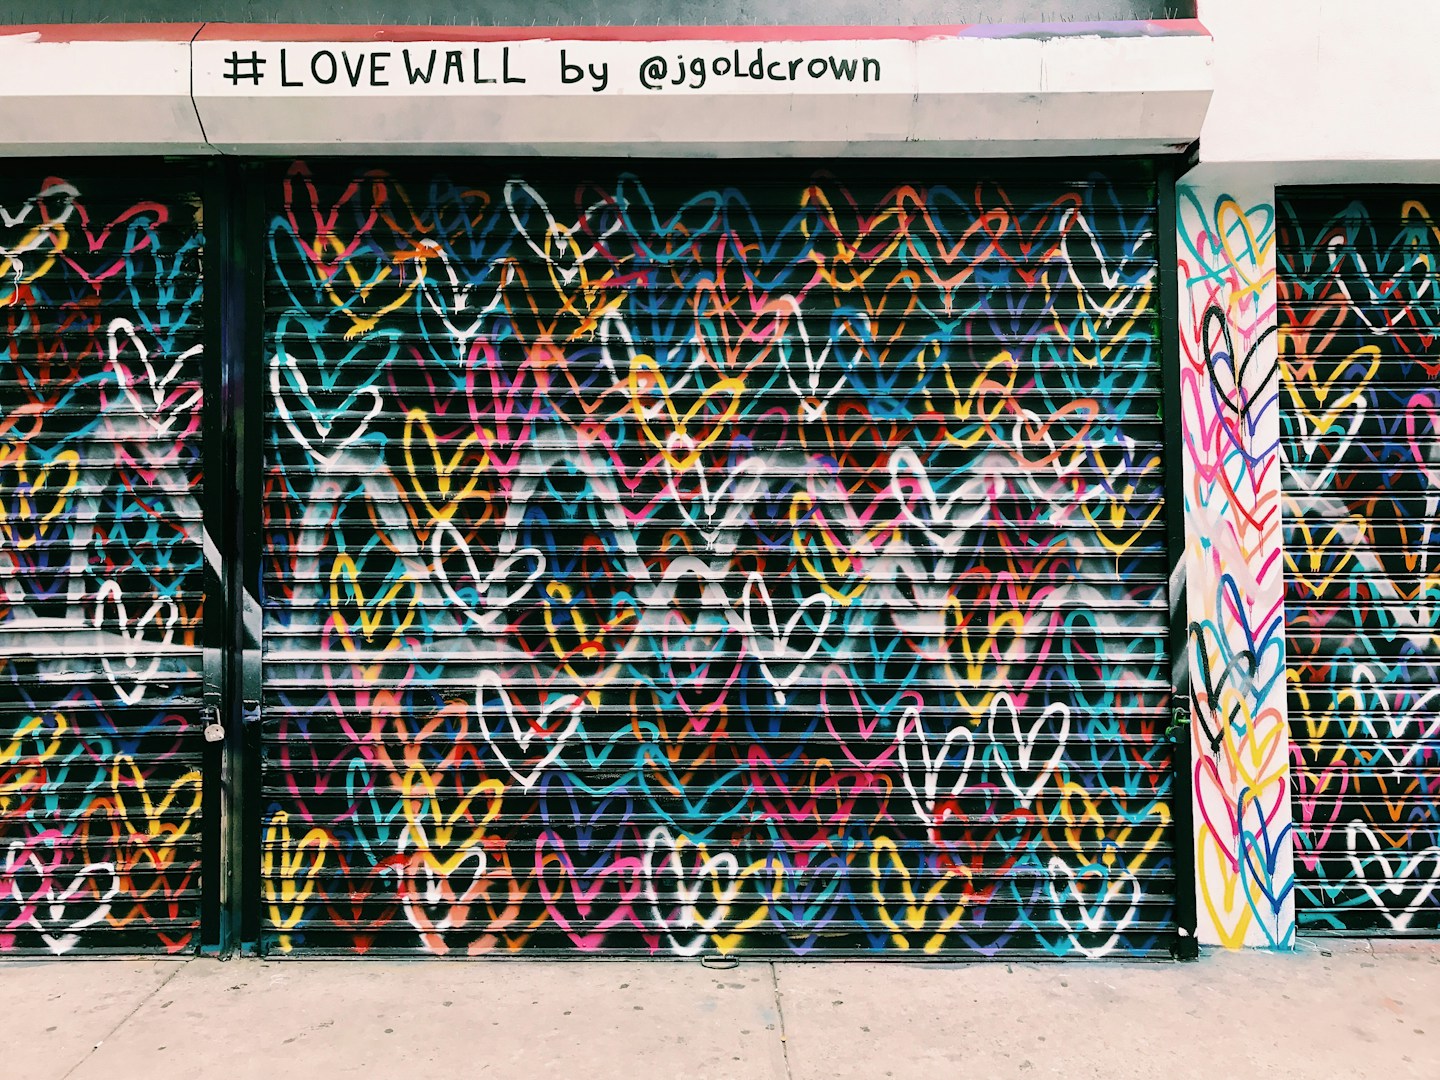 #LOVE WALL by @jgoldcrown